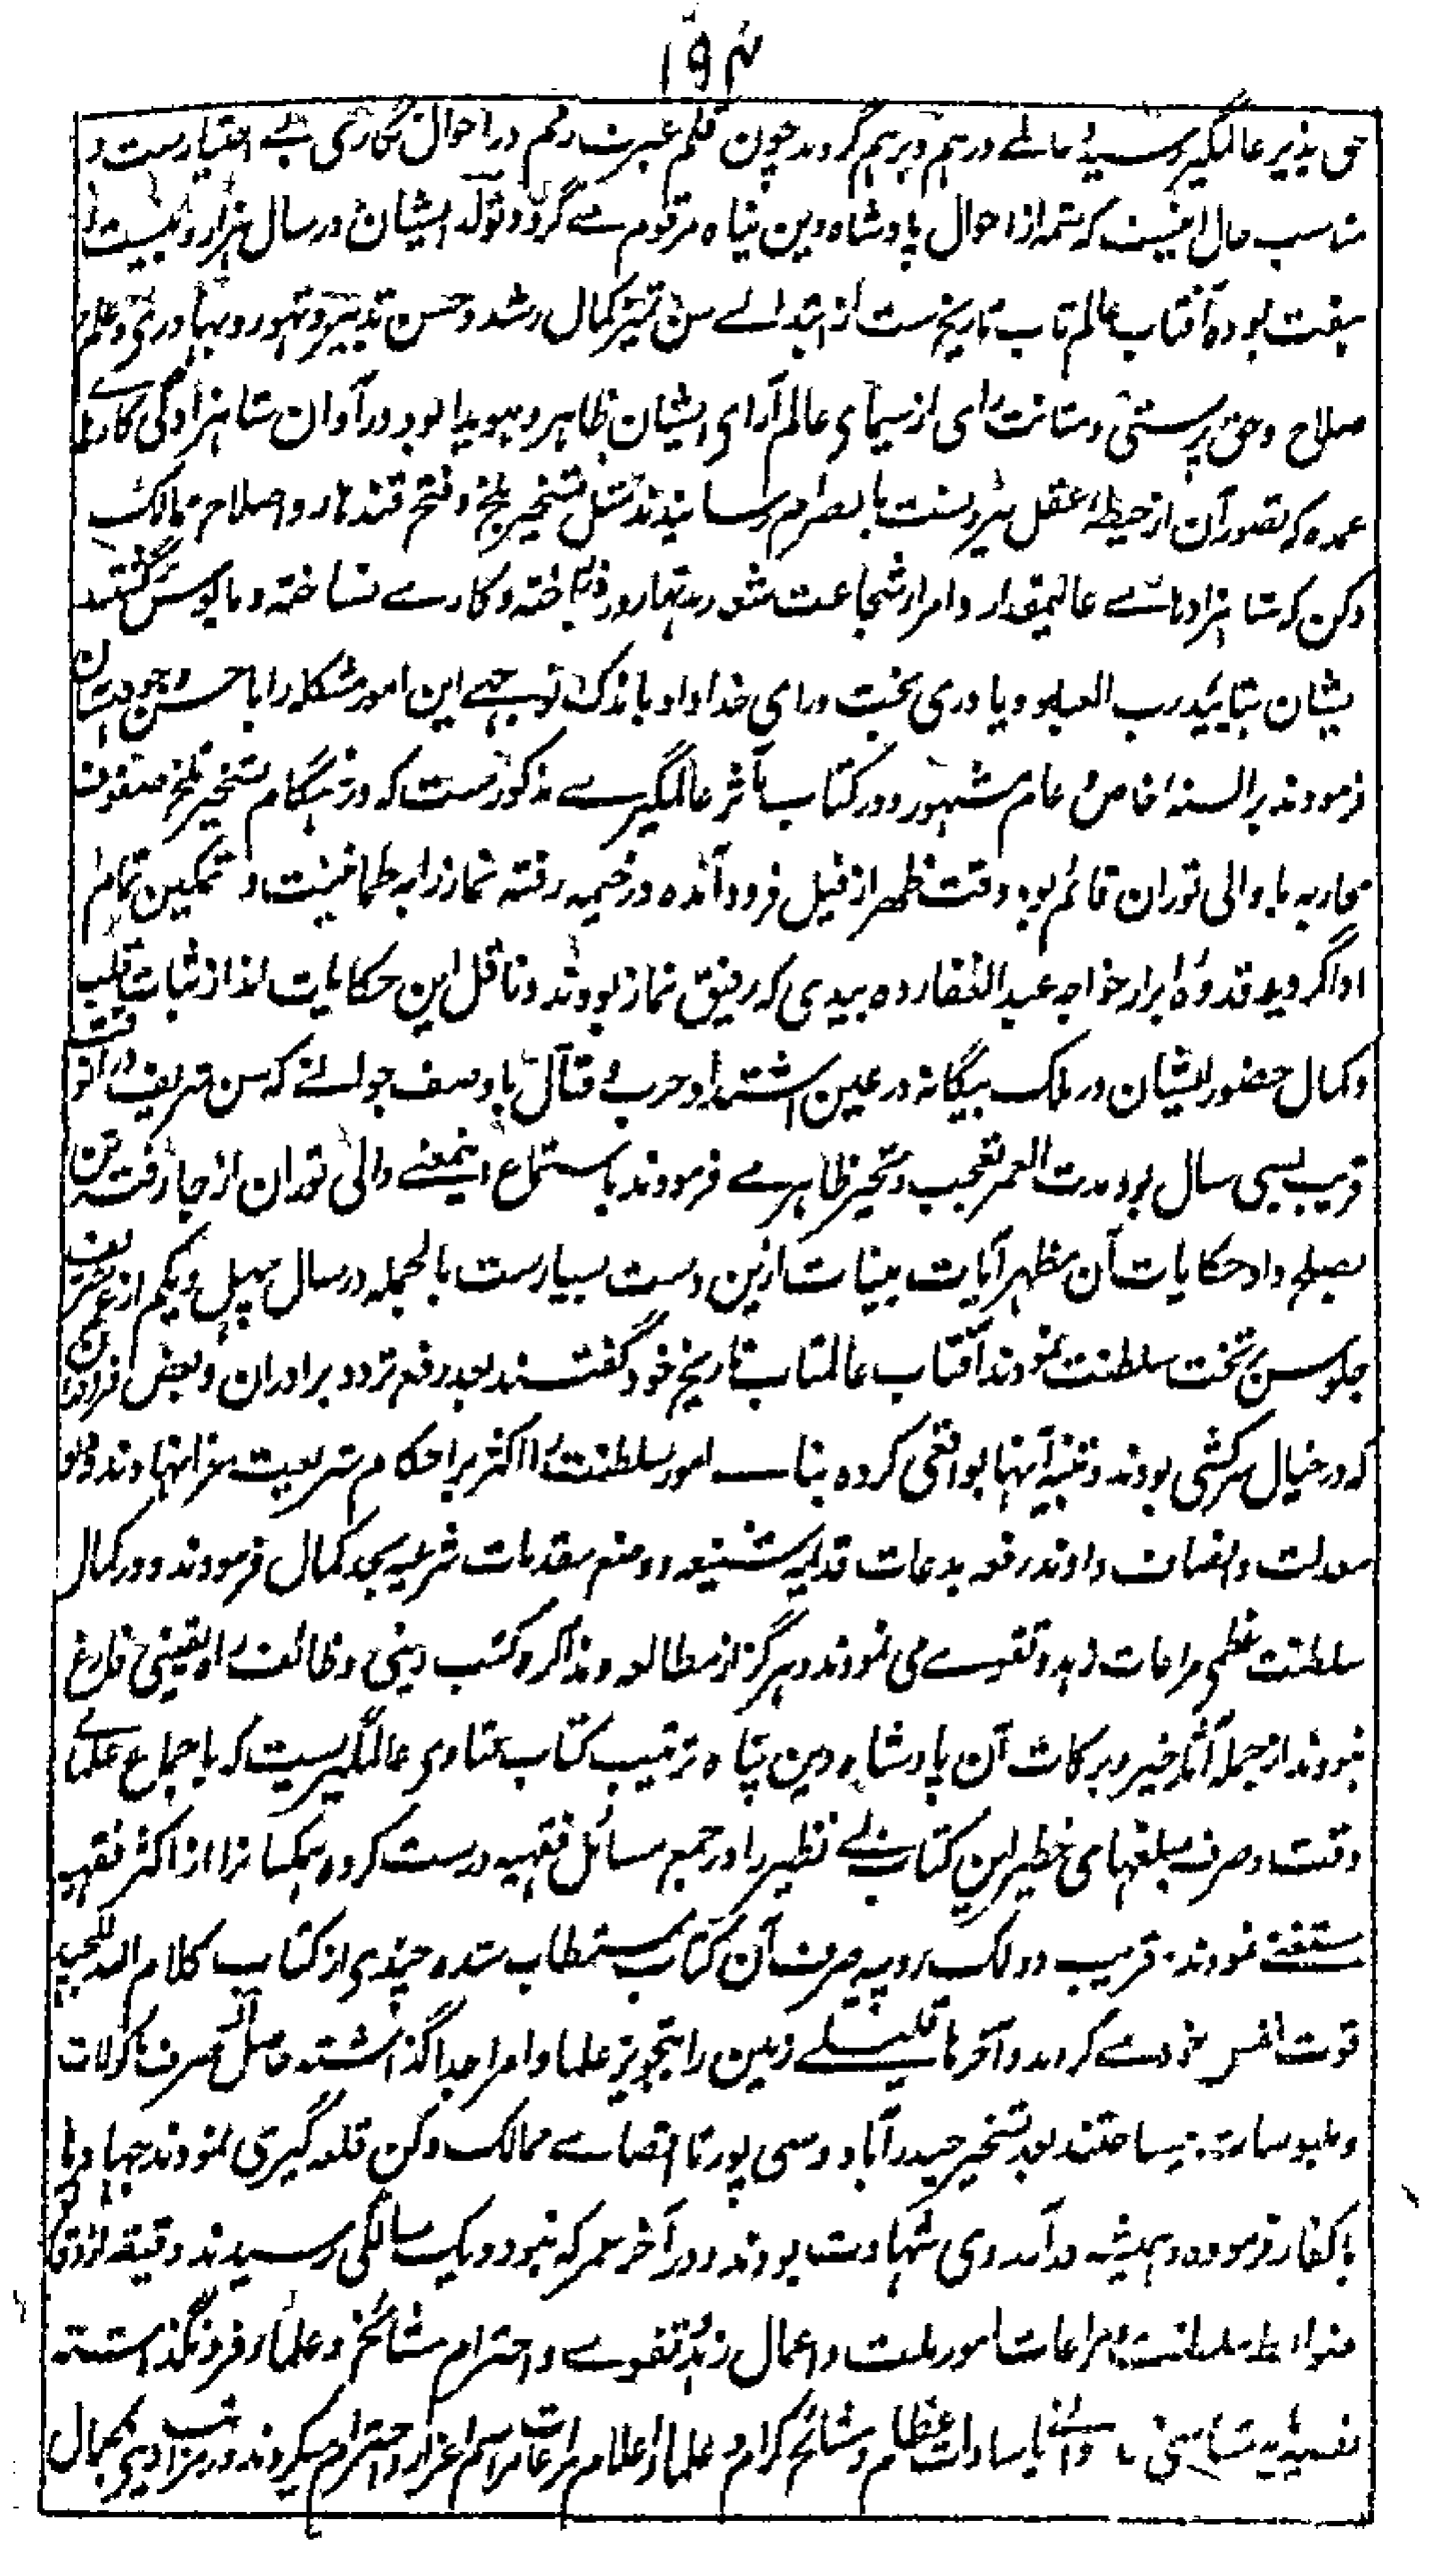 ۱۹۴
حق پذیر عالمگیر رسید عالمے درہم و برہم گردید چون قلم عبرت رقم در احوال نگاری بے اختیارست و
مناسب حال اینست کہ شمہ از احوال پادشاہ دین پناہ مرقوم مے گردد تولد ایشان در سال ہزار و بیست و
ہفت بودہ آفتاب عالم تاب تاریخ ست از ابتدائے سن تمیز کمال رشد و حسن تدبیر و تہور و بہادری و علم و
صلاح و حق پرستی و متانت رای از سیمای عالم آرای ایشان ظاہر و ہویدا بود در آوان شاہزادگی کارہائے
عمدہ کہ تصور آن از حیطۂ عقل بیرونست بانصرام رسانیدند مثل تسخیر بلخ و فتح قندہار و اصلاح ممالک
دکن کہ شاہزادہائے عالیمقدار و امرای شجاعت شعار بدتہا روز و کارے نساختہ و مایوس برگشتند
یشان بتائید رب العباد و یاوری بخت و رای خداداد باندک توجہے این امور مشکلہ را باحسن وجوہ ایشان
فرمودند بر السنۂ خاص و عام مشہور و در کتاب مآثر عالمگیرے مذکورست کہ در ہنگام تسخیر بلخ صفوف
محاربہ با والی توران قائم بود وقت ظہر از فیل فرود آمدہ در خیمہ رفتہ نماز را بہ طمانینت و تمکین تمام
ادا گردید قدوۂ ابرار خواجہ عبد الغفار دہ بیدی کہ رفیق نماز بودند و ناقل این حکایات اند از ثبات قلب
و کمال حضور ایشان در ملک بیگانہ در عین اشتداد حرب و قتال باوصف جوانے کہ سن شریف در آنوقت
قریب بسی سال بود مدت العمر تعجب و تحیر ظاہر مے فرمودند باستماع اینمعنے والی توران از جا رفتہ تن
بصلح داد حکایات آن مظہر آیات بینات ازین دست بسیارست بالجملہ در سال چہل و یکم از عمر شریف
جلوس بر تخت سلطنت نمودند آفتاب عالمتاب تاریخ خود گفتند بعد رفع تردد برادران و بعض
کہ در خیال سرکشی بودند و تنبیہ آنہا بواقعی کردہ بنائے امور سلطنت را اکثر بر احکام شریعت غرا نہادند و داد
معدلت و انصاف دادند رفع بدعات قدیمہ شنیعہ و وضع مقدمات شرعیہ بحد کمال فرمودند و در کمال
سلطنت عظمی مراعات زہد و تقوے می نمودند و ہرگز از مطالعہ و مذاکرہ کتب دینی و ظائف راہ یقینی فارغ
نبودند از جملہ آثار خیر و برکات آن پادشاہ دین پناہ ترتیب کتاب فتاوی عالمگیریست کہ باجماع علمائے
وقت و صرف مبلغہای خطیر این کتاب بے نظیر را در جمیع مسائل فقہیہ درست کردہ ہمکنانرا از اکثر فقہیہ
مستغنے نمودند قریب دو لک روپیہ صرف آن کتاب مستطاب شدہ چندی از کتاب کلام اللہ المجید
قوت نفس خود مے کردند و آخرہا قلیلے زمین را بتجویز علما و امرا جدا گذاشتہ حاصل آن صرف ماکولات
و ملبوسات میساختند بعد تسخیر حیدرآباد و بیجاپور تا اقصائے ممالک دکن قلعہ گیری نمودند جہادہا
با کفار فرمودہ ہمیشہ در آرزوی شہادت بودند و در آخر عمر کہ بنود و یک سالگی رسیدند دقیقہ از دقائق
ضوابط سلطنت و مراعات امور ملت و اعمال زہد و تقوے و احترام مشائخ و علما را فرو نگذاشتہ
با سادات عظام و مشائخ کرام و علمائے اعلام مراعات مراسم اعزاز و احترام میکردند و بکمال